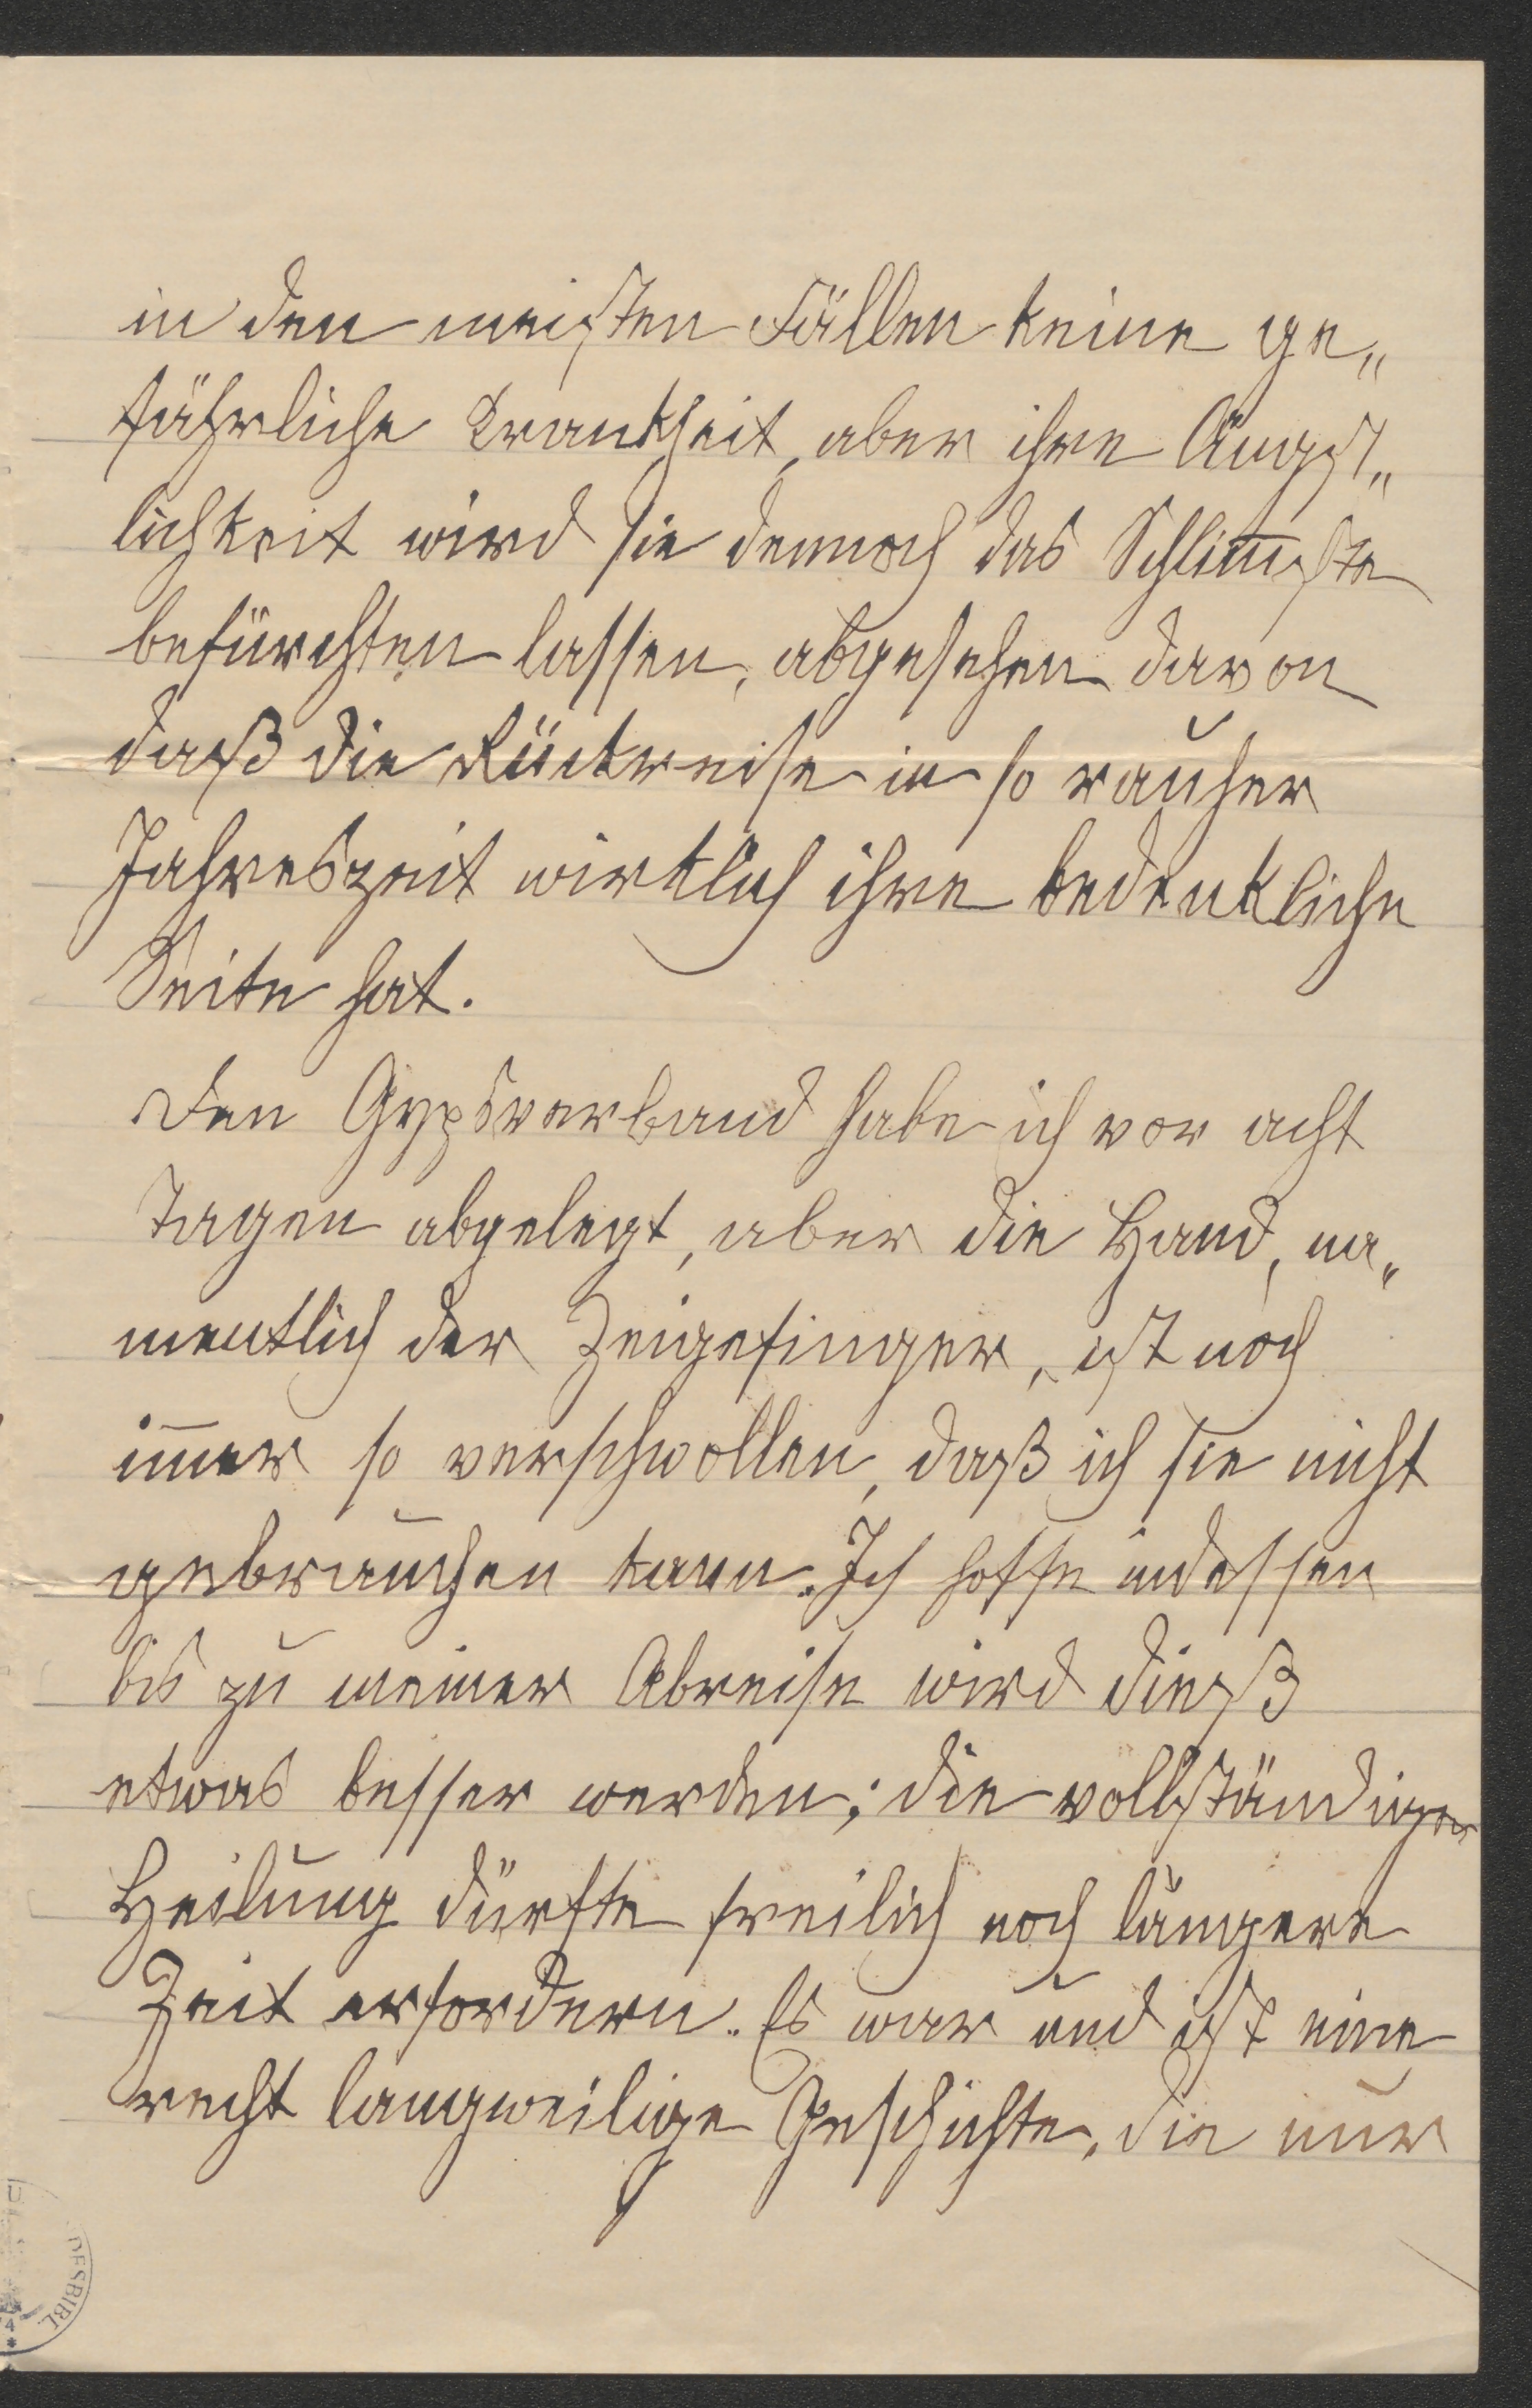 in den meisten Fällen keine ge„
fährliche Krankheit, aber ihre Ängst„
lichkeit wird sie dennoch das Schlim̅ste
befürchten lassen, abgesehen davon
daß die Rückreise in so rauher
Jahreszeit wirklich ihre bedenkliche
Seite hat.
Den Gypsverband habe ich vor acht
Tagen abgelegt, aber die Hand, na„
mentlich der Zeigefinger, ist noch
im̅er so verschwollen, daß ich sie nicht
gebrauchen kann. Ich hoffe indessen
bis zu meiner Abreise wird dieß
etwas besser werden; die vollständige
Heilung dürfte freilich noch längere
Zeit erfordern. Es war und ist eine
recht langweilige Geschichte, die nur
DESBIBL.